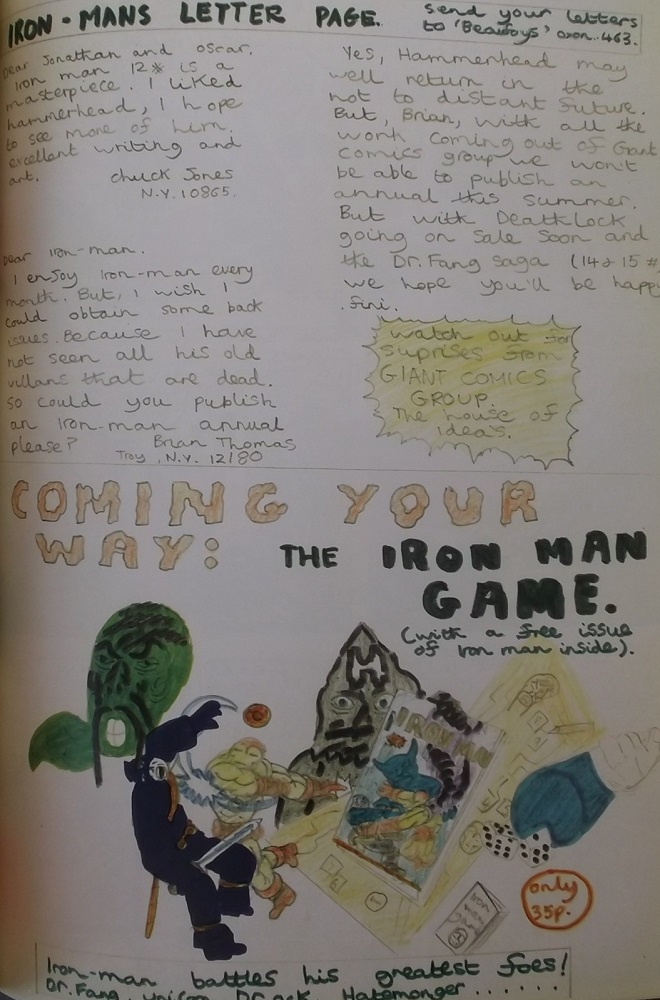 IRON-MANS LETTER PAGE.
send your letters
to 'Beaufoys' avon..463.
Dear Jonathan and oscar.
Iron man 12* is a
masterpiece. I liked
hammerhead, I hope
to see more of him.
excellent writing and
art.
chuck Jones
N.Y. 10865.
Dear Iron-man.
I enjoy Iron-man every
month. But, I wish I
could obtain some back
issues. Because I have
not seen all his old
villans that are dead.
so could you publish
an Iron-man annual
please?
Brian Thomas
Troy, N.Y. 12180
Yes, Hammerhead may
well return in the
not to distant future.
But, Brian, with all the
work coming out of Giant
Comics group we won't
be able to publish an
annual this summer.
But with Deathlock
going on sale soon and
the Dr. Fang saga (14 & 15 #
we hope you'll be happy
.fini.
watch out for
suprises from
GIANT COMICS
GROUP.
The house of
idea's.
COMING YOUR
WAY: THE IRON MAN
GAME.
(with a free issue
of Iron man inside).
IRON MAN
only
35p.
Iron-man battles his greatest foes!
Dr. Fang, Unicorn, Hatemonger......